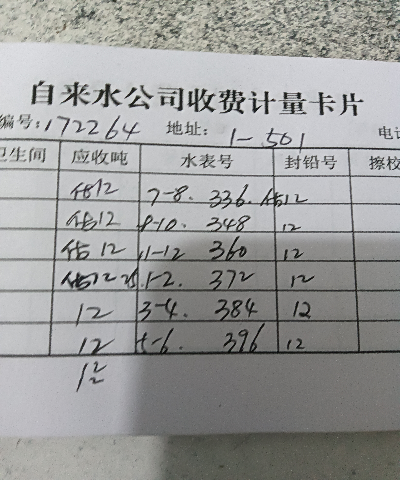 自来水公司收费计量卡片
编号:172264 地址: 1-501 电话
卫生间 应收吨 水表号 封铅号 擦校
估12 7-8. 336. 估12
估12 9-10. 348 12
估12 11-12 360 12
估12 1-2. 372 12
12 3-4. 384 12
12 5-6. 396 12
12